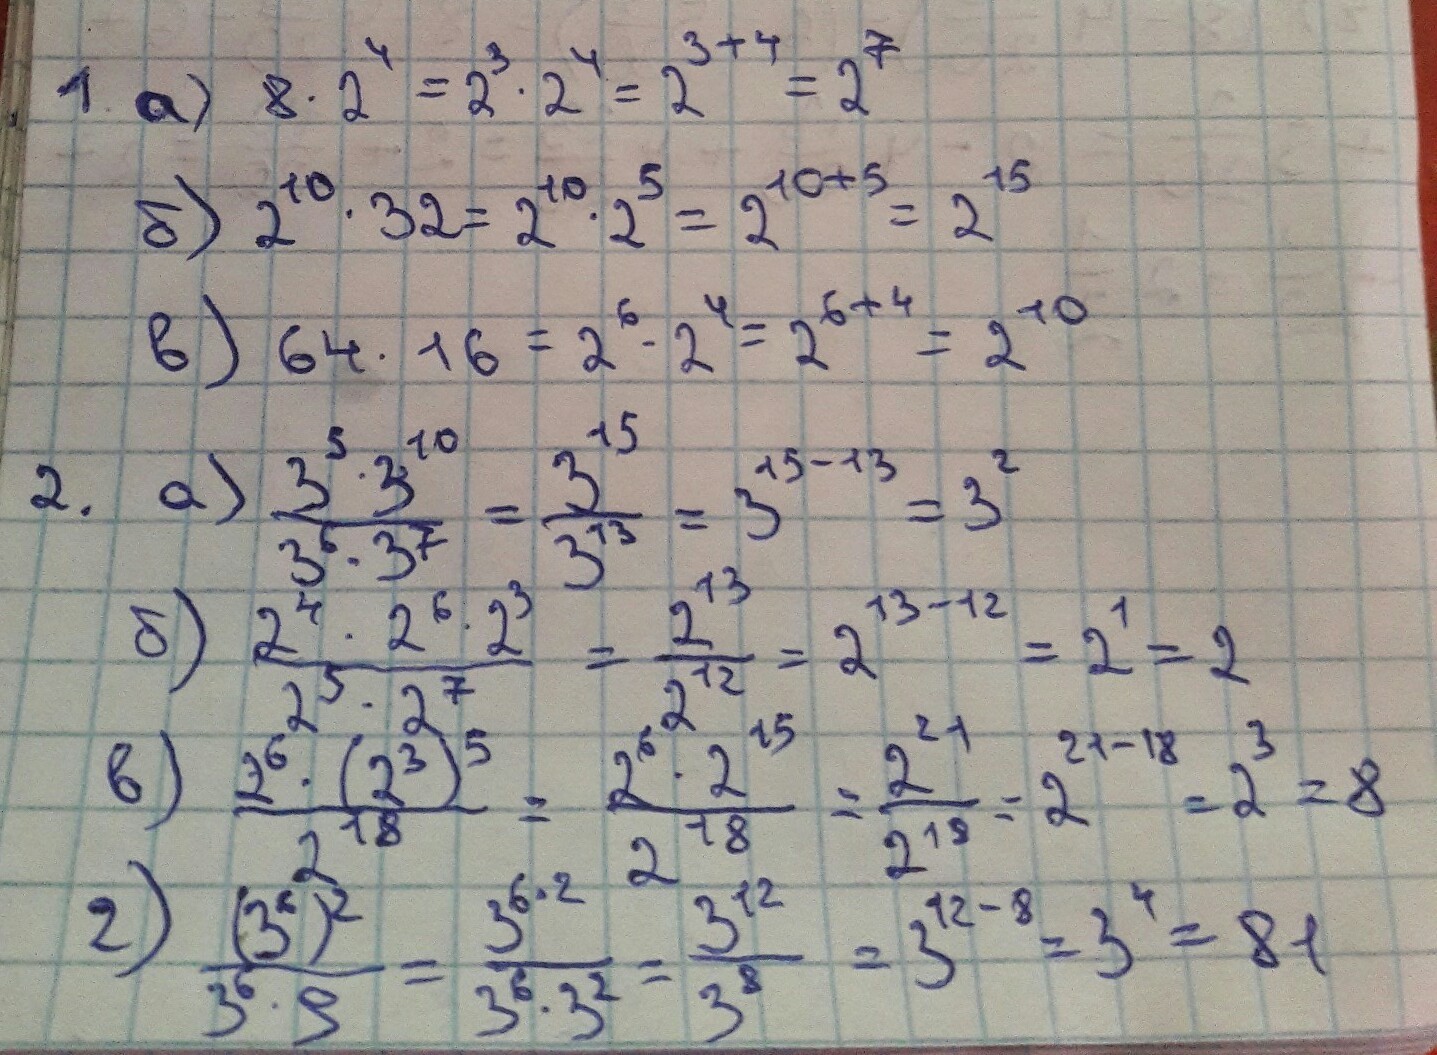 1. а) 8 · 2⁴ = 2³ · 2⁴ = 2³⁺⁴ = 2⁷
б) 2¹⁰ · 32 = 2¹⁰ · 2⁵ = 2¹⁰⁺⁵ = 2¹⁵
в) 64 · 16 = 2⁶ · 2⁴ = 2⁶⁺⁴ = 2¹⁰
2. а) (3⁵ · 3¹⁰)/(3⁶ · 3⁷) = 3¹⁵/3¹³ = 3¹⁵⁻¹³ = 3²
б) (2⁴ · 2⁶ · 2³)/(2⁵ · 2⁷) = 2¹³/2¹² = 2¹³⁻¹² = 2¹ = 2
в) (2⁶ · (2³)⁵)/2¹⁸ = (2⁶ · 2¹⁵)/2¹⁸ = 2²¹/2¹⁸ = 2²¹⁻¹⁸ = 2³ = 8
г) (3⁶)²/(3⁶ · 9) = 3⁶˙²/(3⁶ · 3²) = 3¹²/3⁸ = 3¹²⁻⁸ = 3⁴ = 81